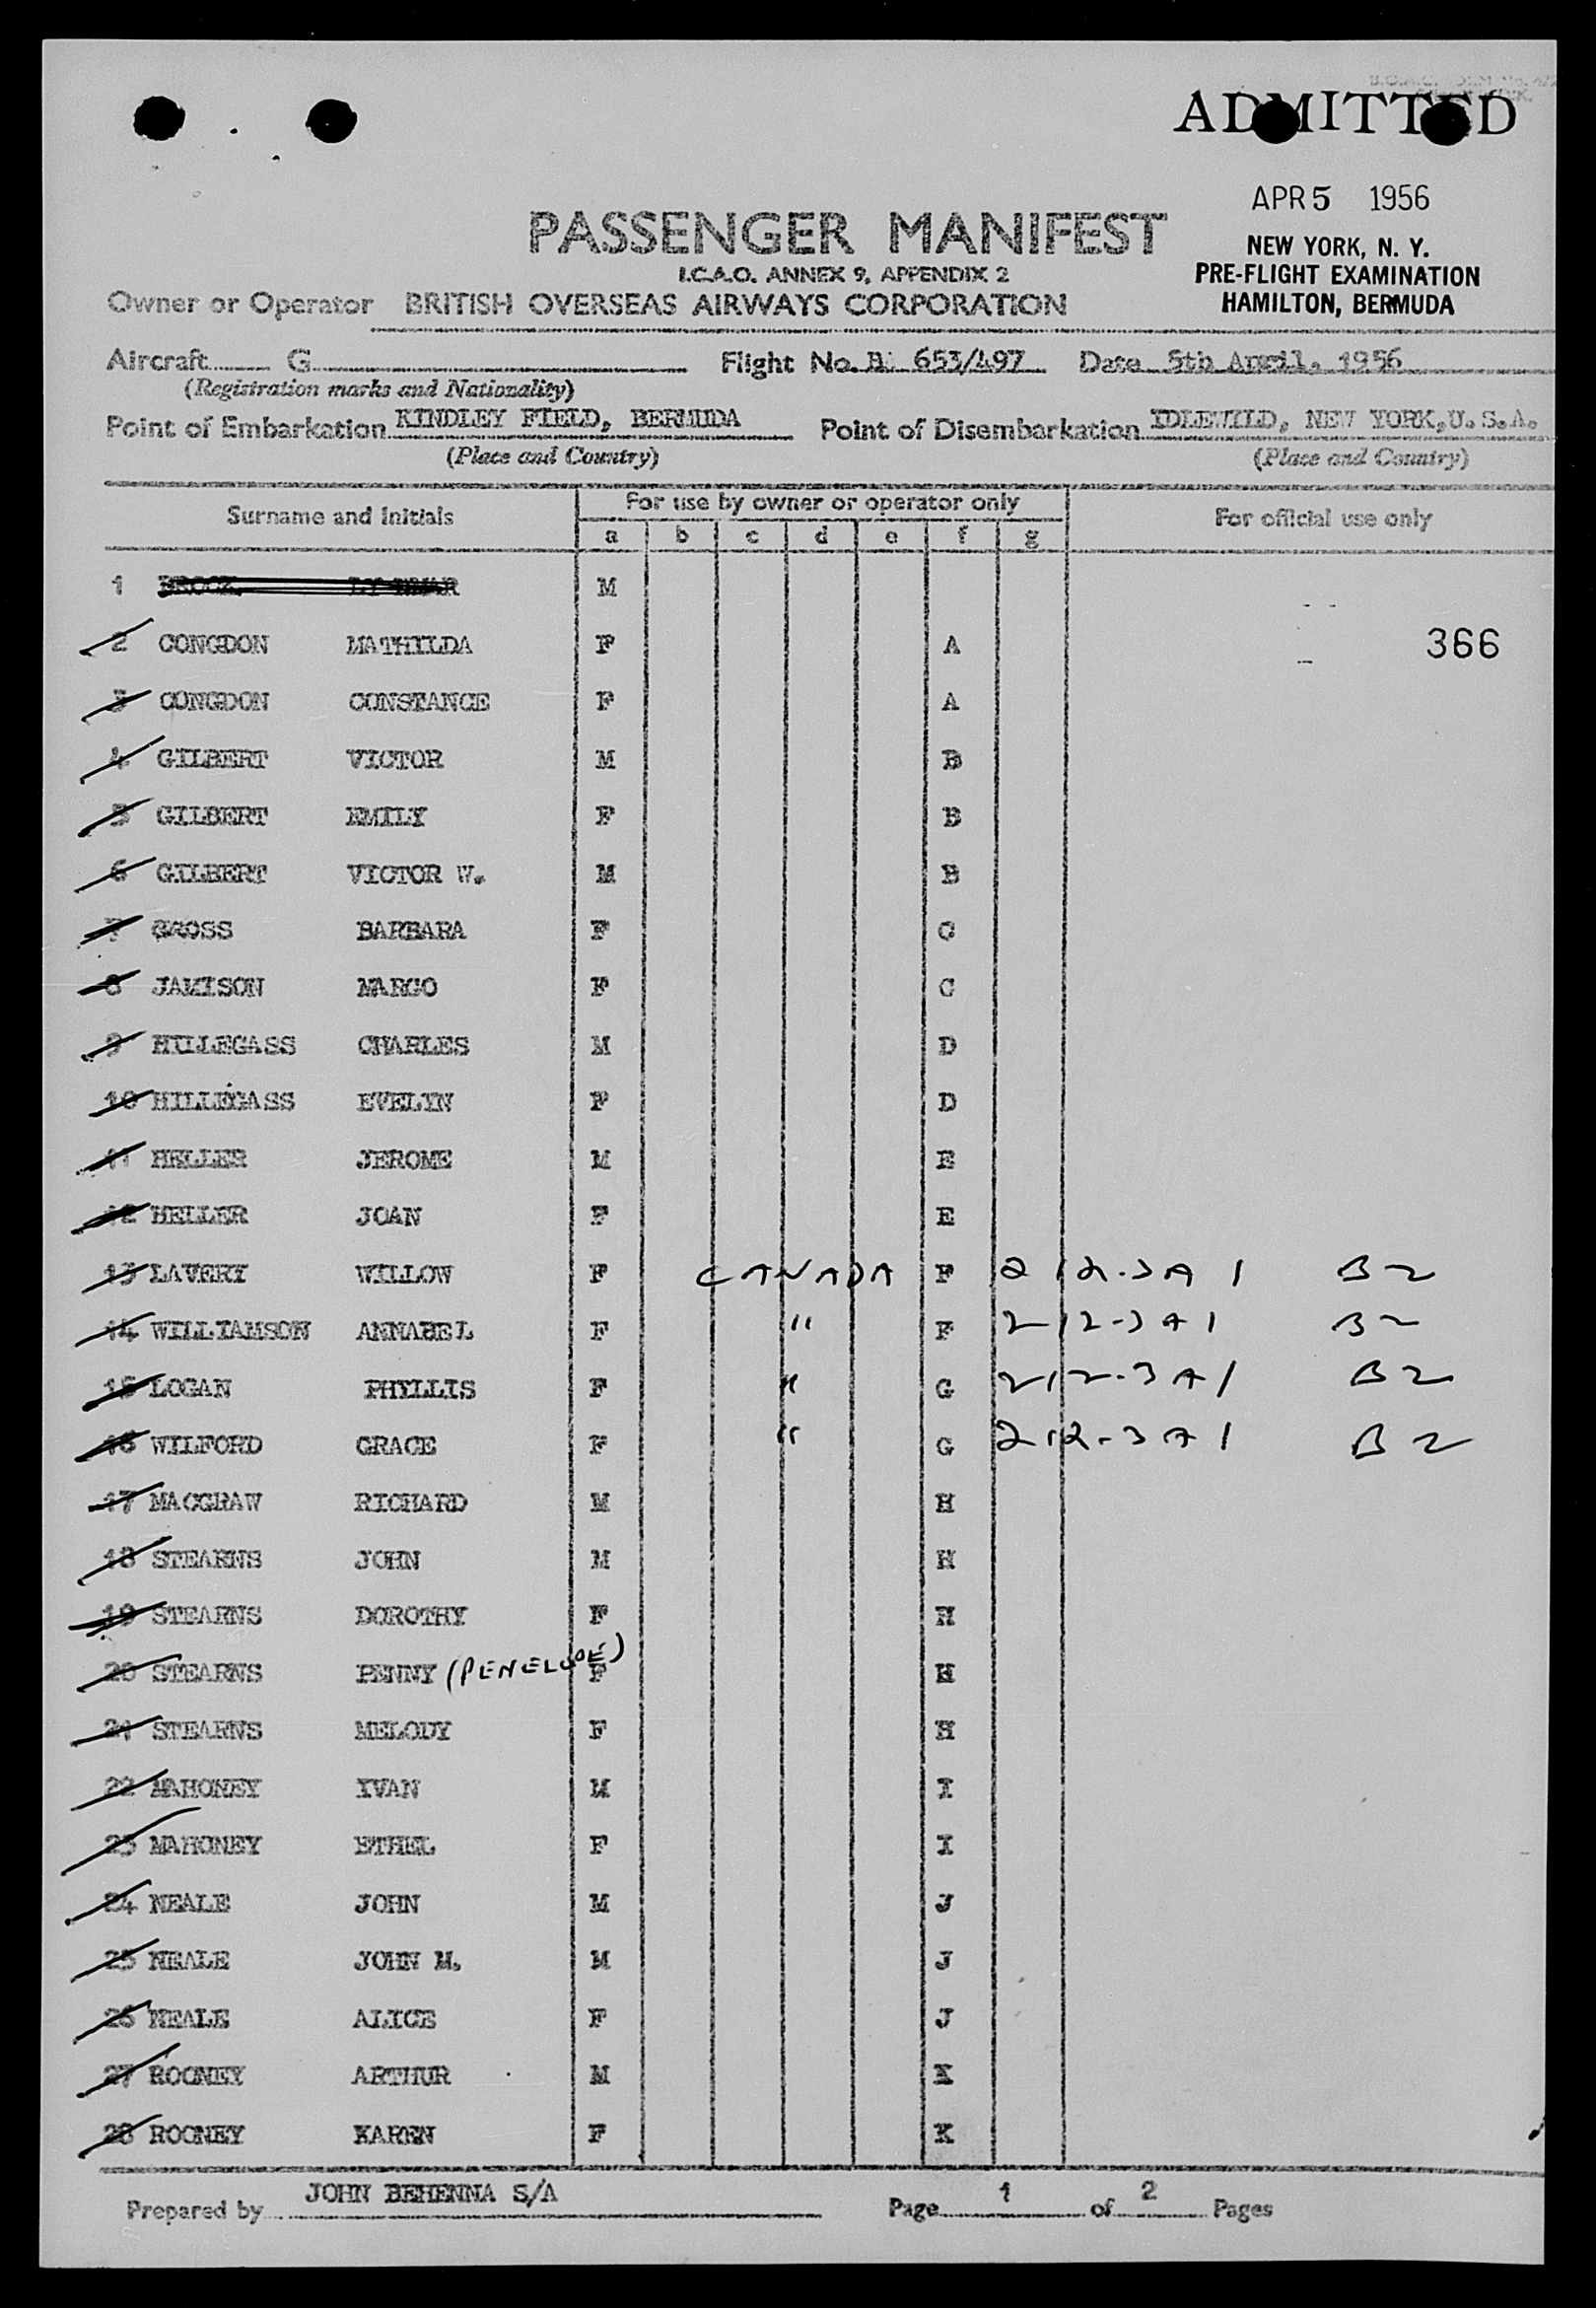 ADMITTED
APR 5 1956
NEW YORK, N. Y.
PRE-FLIGHT EXAMINATION
HAMILTON, BERMUDA
PASSENGER MANIFEST
I.C.A.O. ANNEX 9, APPENDIX 2
Owner or Operator BRITISH OVERSEAS AIRWAYS CORPORATION
Aircraft G Flight No. B. 653/497 Date 5th April, 1956
(Registration marks and Nationality)
Point of Embarkation KINDLEY FIELD, BERMUDA Point of Disembarkation IDLEWILD, NEW YORK, U.S.A.
(Place and Country) (Place and Country)
Surname and Initials For use by owner or operator only For official use only
a b c d e f g
1 M
2 CONGDON MATHILDA F A 366
3 CONGDON CONSTANCE F A
4 GILBERT VICTOR M B
5 GILBERT EMILY F B
6 GILBERT VICTOR W. M B
7 GROSS BARBARA F C
8 JAMISON MARGO F C
9 HILLEGASS CHARLES M D
10 HILLEGASS EVELYN F D
11 HELLER JEROME M E
12 HELLER JOAN F E
13 LAVERY WILLOW F CANADA F 212-3A1 B2
14 WILLIAMSON ANNABEL F " F 212-3A1 B2
15 LOGAN PHYLLIS F " G 212-3A1 B2
16 WILFORD GRACE F " G 212-3A1 B2
17 MACGRAW RICHARD M H
18 STEARNS JOHN M H
19 STEARNS DOROTHY F H
20 STEARNS PENNY (PENELOPE) F H
21 STEARNS MELODY F H
22 MAHONEY IVAN M I
23 MAHONEY ETHEL F I
24 NEALE JOHN M J
25 NEALE JOHN M. M J
26 NEALE ALICE F J
27 ROONEY ARTHUR M K
28 ROONEY KAREN F K
Prepared by JOHN BEHENNA S/A Page 1 of 2 Pages